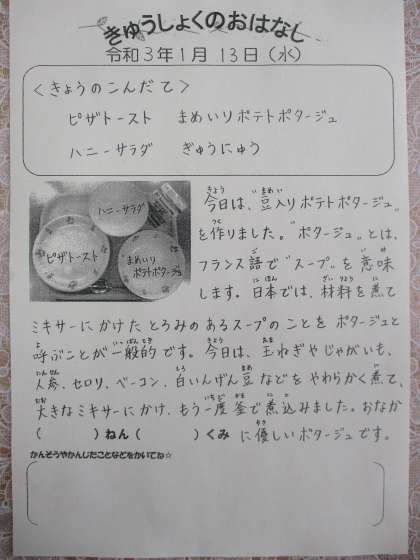 きゅうしょくのおはなし
令和3年1月 13日 (水)
<きょうのこんだて>
ピザトースト まめいりポテトポタージュ
ハニーサラダ ぎゅうにゅう
ハニーサラダ
ピザトースト
まめいり
ポテトポタージュ
今日は、豆入りポテトポタージュ
を作りました。"ポタージュ"とは、
フランス語で"スープ"を意味
します。日本では、材料を煮て
ミキサーにかけたとろみのあるスープのことをポタージュと
呼ぶことが一般的です。今日は、玉ねぎやじゃがいも、
人参、セロリ、ベーコン、白いんげん豆などをやわらかく煮て、
大きなミキサーにかけ、もう一度釜で煮込みました。おなか
に優しいポタージュです。
( )ねん( )くみ
かんそうやかんじたことなどをかいてね☆